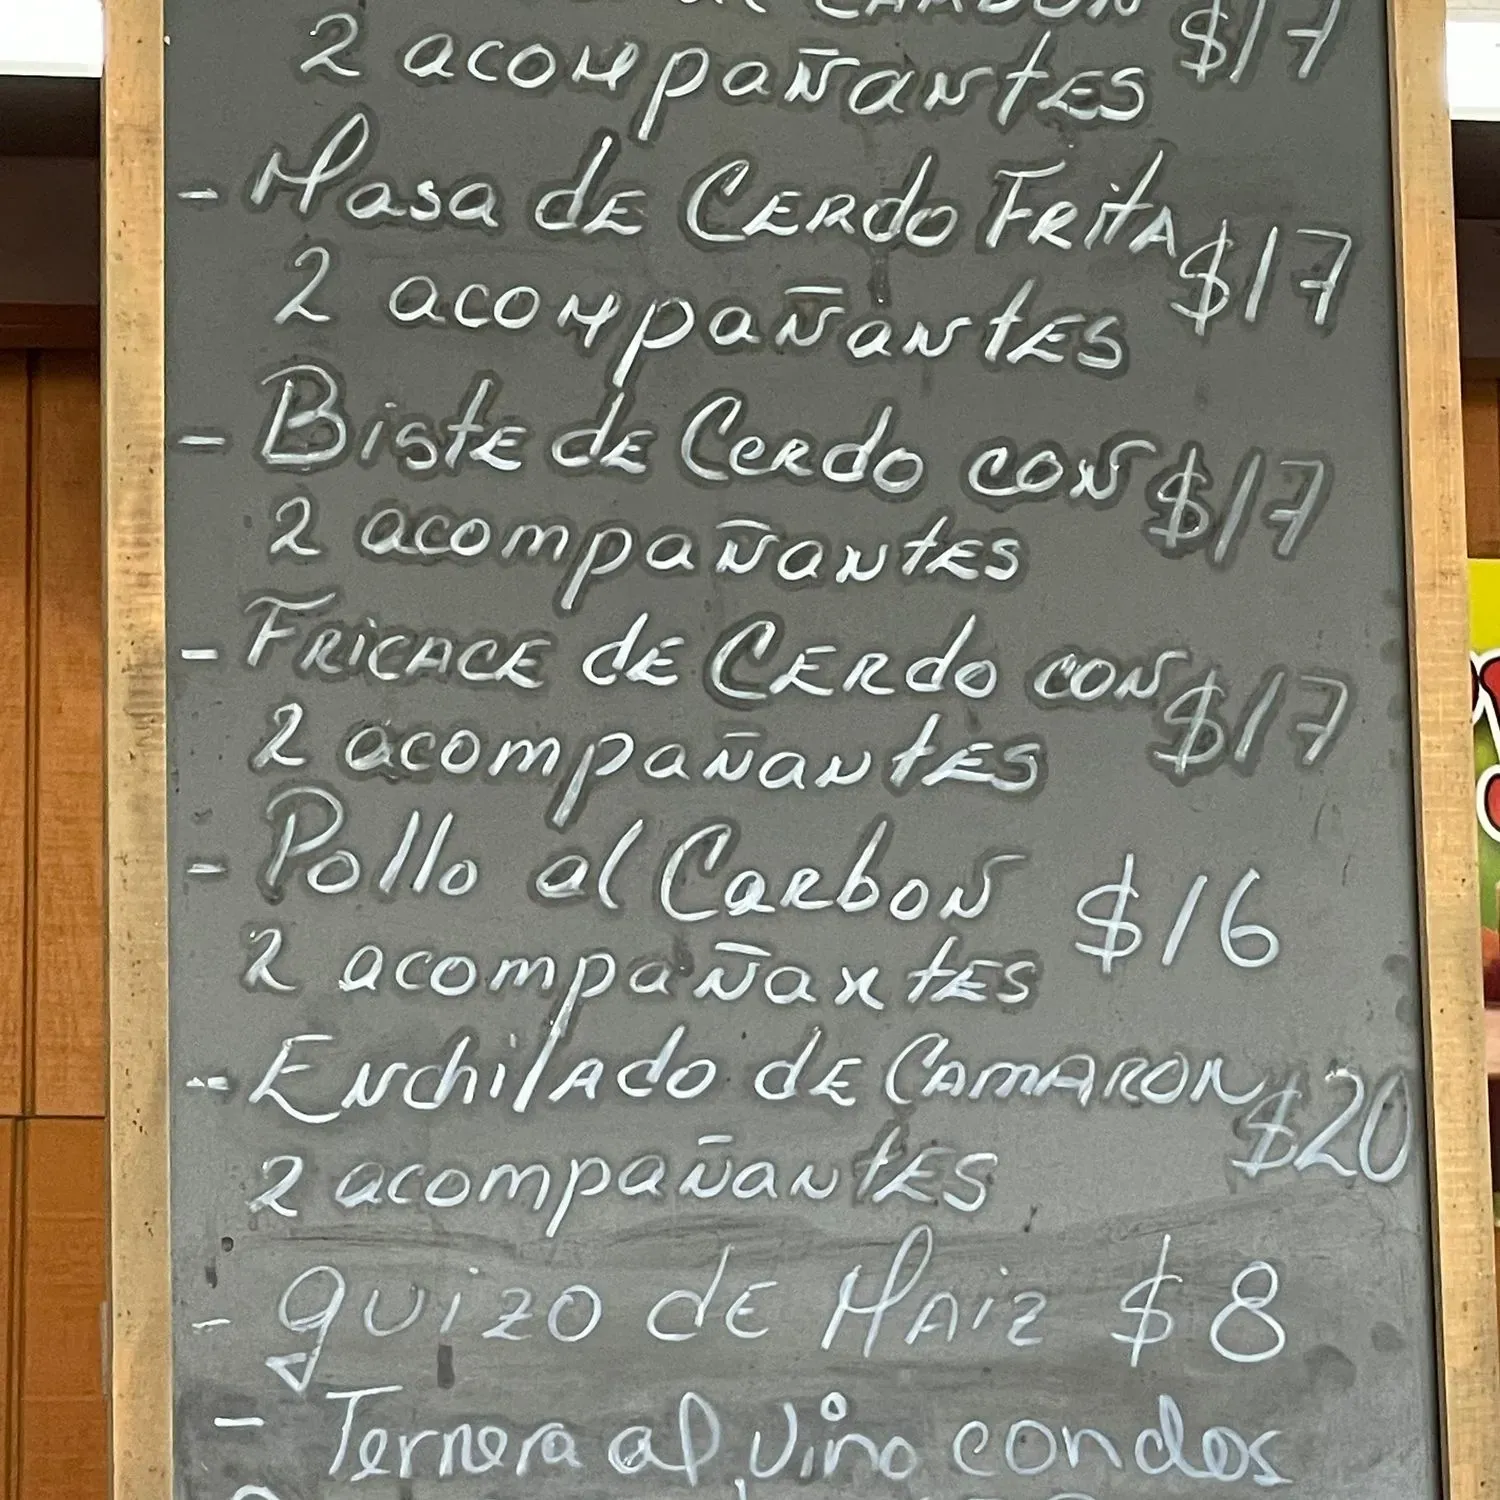 al CARBON $17
2 acompañantes
- Masa de CERdo FRita $17
2 acompañantes
- Biste de Cerdo con $17
2 acompañantes
- FRICACE de CERdo con $17
2 acompañantes
- Pollo al Carbon $16
2 acompañantes
- Enchilado de CAMARON $20
2 acompañantes
- quizo de Maiz $8
- Ternera al vino con dos